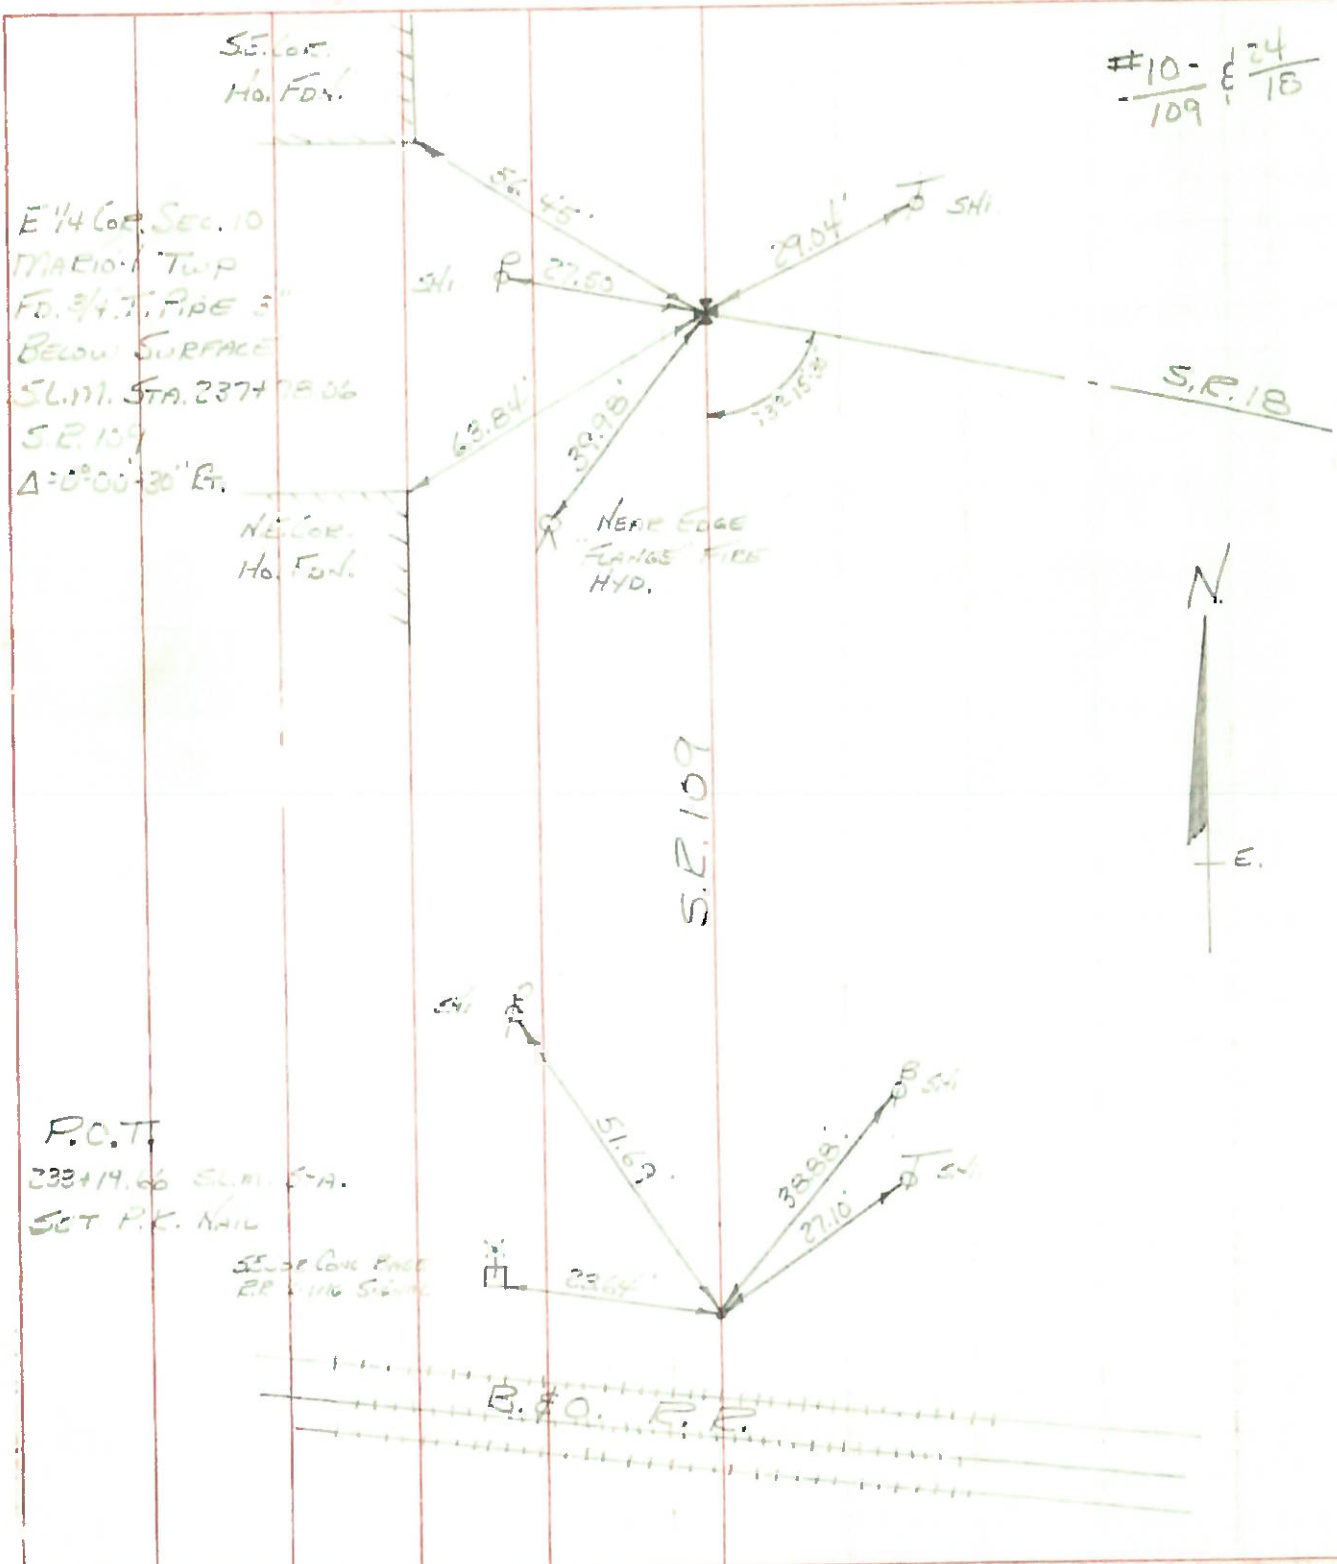 S.E. COR.
HO. FDN.
#10- & 24
109 18
56.45'
29.04'
SHI.
E 1/4 COR. SEC. 10
MARION TWP
FD. 3/4" I. PIPE 3"
BELOW SURFACE
S.L.M. STA. 237+78.06
S.R. 109
Δ=0°00'30" RT.
SHI.
27.50
63.84'
39.98'
S.R. 18
N.E. COR.
HO. FDN.
NEAR EDGE
"FLANGE" FIRE
HYD.
N.
E.
S.R. 109
SHI
B SHI
51.62'
38.88'
T SHI.
27.10'
P.O.T.
233+19.66 S.L.M. STA.
SET P.K. NAIL
S.E. COR CONC BASE
R.R. SIGNAL
23.64'
B. & O. R. R.